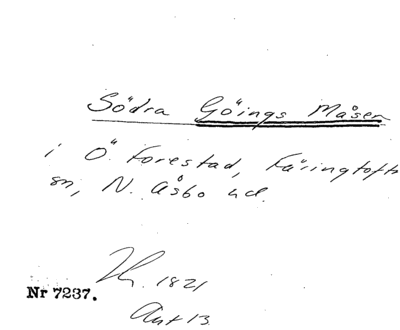 Södra Göings Måsen
i Ö. Forestad, Färingtofts
sn, N. Åsbo hd.
1821
Nr 7237.
Ant 13